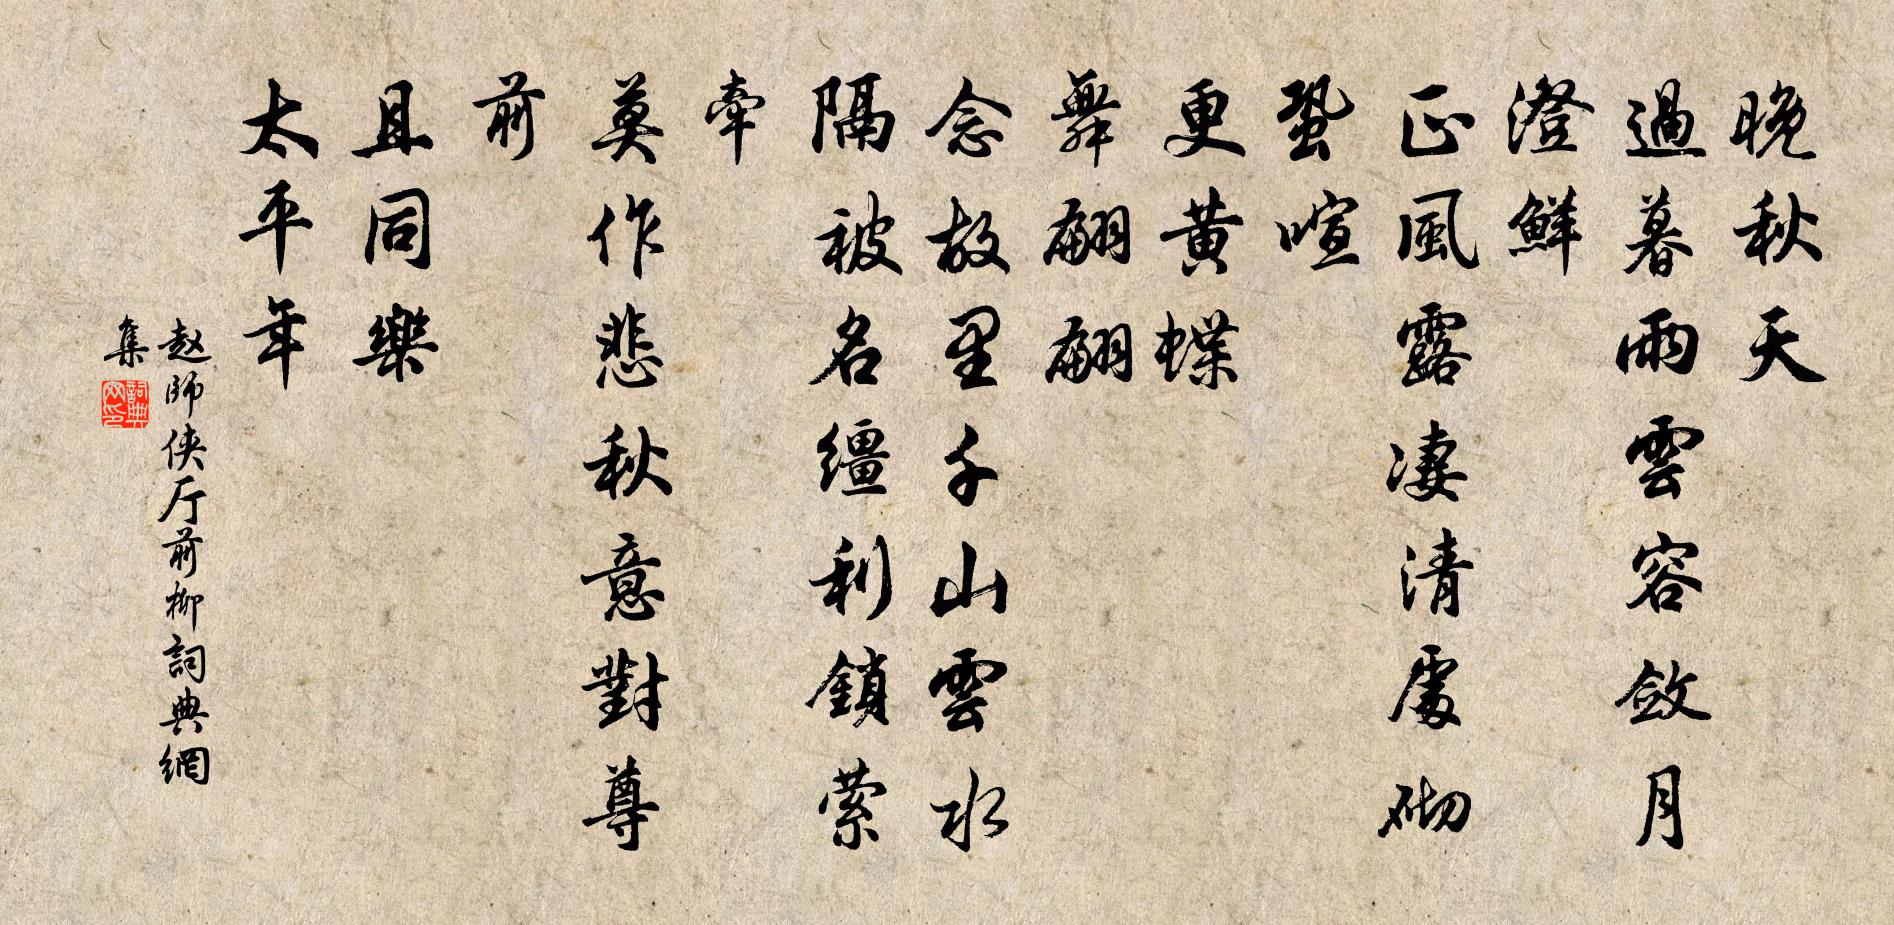 晚秋天
過暮雨雲容斂月
澄鮮
正風露凄清處砌
蛩喧
更黄蝶
舞翩翩
念故里千山雲水
隔被名繮利鎖縈
牽
莫作悲秋意對尊
前
且同樂
太平年
赵師俠厅前柳詞典網
集
詞典网印